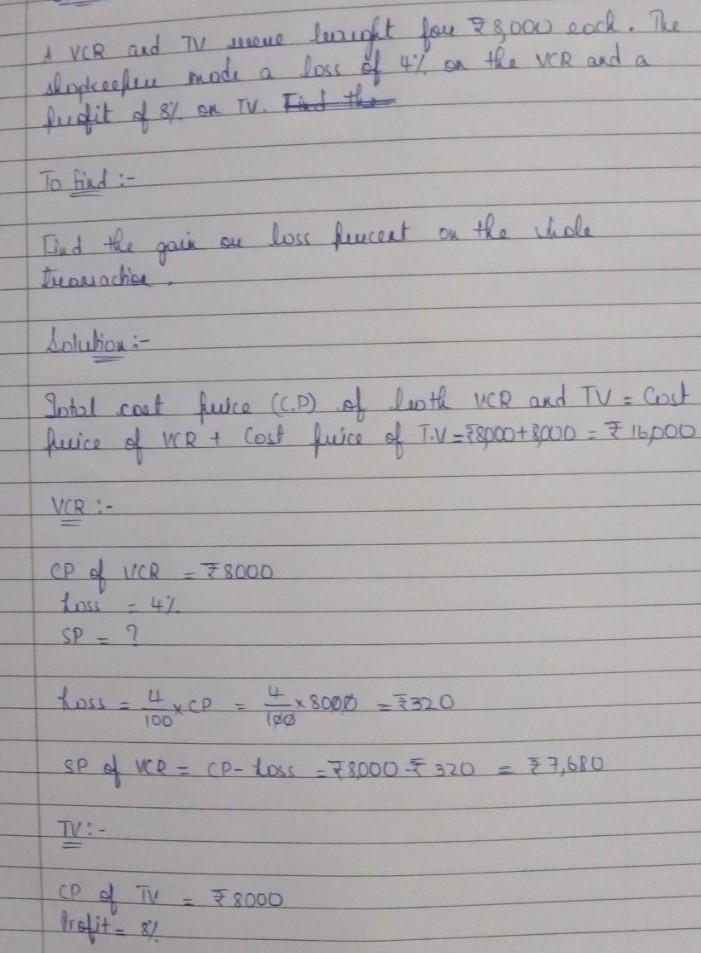 A VCR and TV were bought for ₹8,000 each. The
shopkeeper made a loss of 4% on the VCR and a
profit of 8% on TV. Find the
To find :-
Find the gain or loss percent on the whole
transaction.
Solution :-
Total cost price (C.P) of both VCR and TV = Cost
price of VCR + Cost price of T.V = ₹8000+8,000 = ₹16,000
VCR :-
CP of VCR = ₹8000
Loss = 4%
SP = ?
Loss = 4/100 × CP = 4/100 × 8000 = ₹320
SP of VCR = CP - Loss = ₹8,000 - ₹320 = ₹7,680
TV :-
CP of TV = ₹8000
Profit = 8%